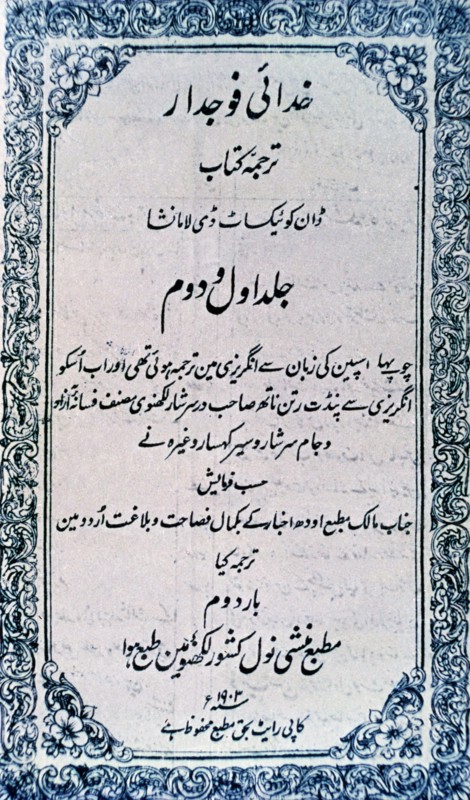 خدائی فوجدار
ترجمۂ کتاب
ڈان کوئیکساٹ ڈی لامانشا
جلد اول و دوم
جو پہلے اسپین کی زبان سے انگریزی مین ترجمہ ہوئی تھی اور اب اُسکو
انگریزی سے پنڈت رتن ناتھ صاحب در سرشار لکھنوی مصنف فسانۂ آزاد
و جام سرشار و سیر کہسار وغیرہ نے
حسب فرمایش
جناب مالک مطبع اودھ اخبار کے بکمال فصاحت و بلاغت اُردو مین
ترجمہ کیا
بار دوم
مطبع منشی نول کشور لکھنؤ مین طبع ہوا
سنہ ۱۹۰۳ ع
کاپی رایٹ بحق مطبع محفوظ ہے